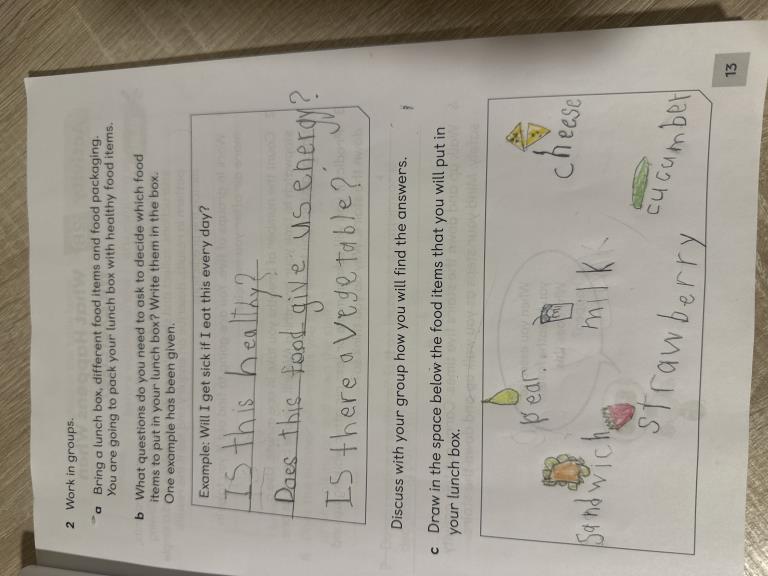 2 Work in groups.
a Bring a lunch box, different food items and food packaging.
You are going to pack your lunch box with healthy food items.
b What questions do you need to ask to decide which food
items to put in your lunch box? Write them in the box.
One example has been given.
Example: Will I get sick if I eat this every day?
Is this healthy?
Does this food give us energy?
IS there a vegetable?
Discuss with your group how you will find the answers.
c Draw in the space below the food items that you will put in
your lunch box.
pear
cheese
milk
Sandwich
cucumber
strawberry
13